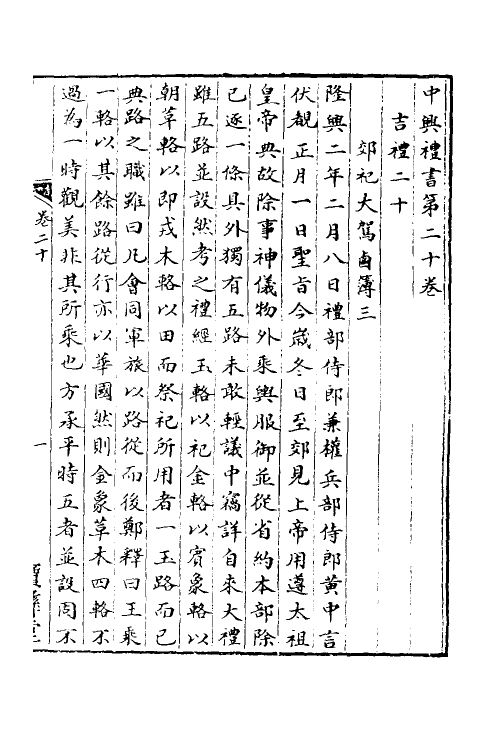 中興禮書第二十卷
吉禮二十
郊祀大駕鹵簿三
隆興二年二月八日禮部侍郎兼權兵部侍郎黃中言
伏覩正月一日聖旨今嵗冬日至郊見上帝用遵太祖
皇帝典故除事神儀物外乘輿服御並從省約本部除
已逐一條具外獨有五路未敢輕議中竊詳自來大禮
雖五路並設然考之禮經玉輅以祀金輅以賓象輅以
朝革輅以即戎木輅以田而祭祀所用者一玉路而已
典路之職雖曰凡會同軍旅以路從而後鄭釋曰王乘
一輅以其餘路從行亦以華國然則金象革木四輅不
過為一時觀美非其所乘也方承平時五者並設固不
卷二十
一